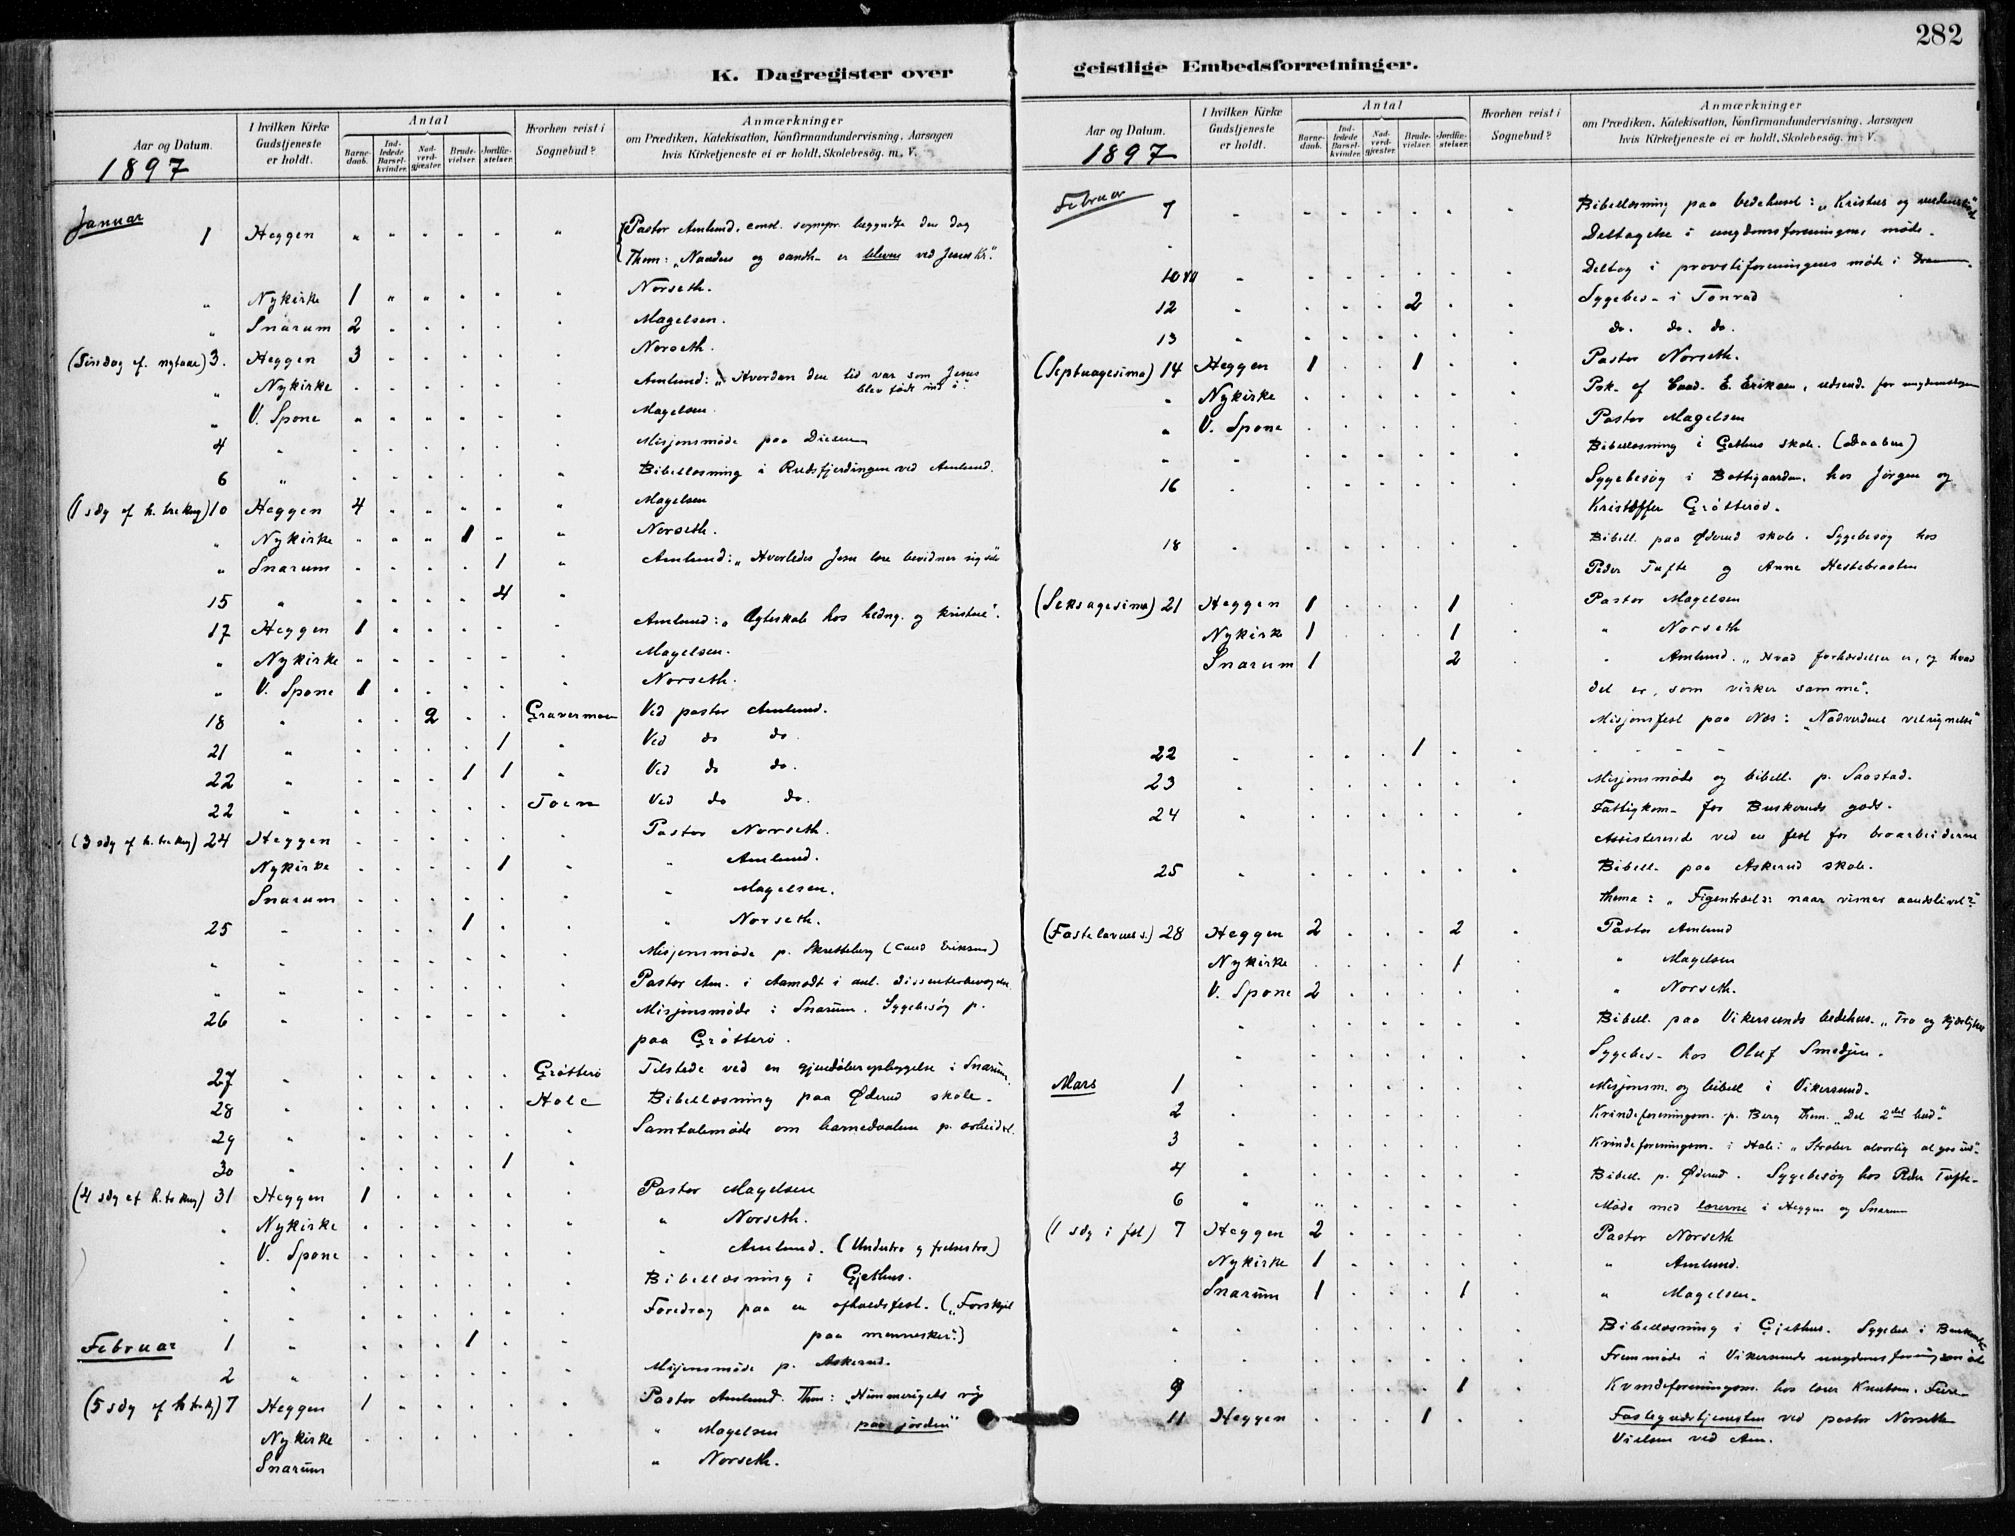 282
K. Dagregister over geistlige Embedsforretninger.
Aar og Datum. I hvilken Kirke Gudstjeneste er holdt. Antal Hvorhen reist i Sognebud? Anmærkninger
Barnedaab. Indledede Barselkvinder. Nadverdgjæster. Brudevielser. Jordfæstelser.
om Prædiken, Katekisation, Konfirmandundervisning, Aarsagen
hvis Kirketjeneste ei er holdt, Skolebesög. m. V.
1897
Januar
1 Heggen " " " " " " Pastor Amlund, const. sognepr. begyndte den dag
Them: „Naaden og sandh. er bleven ved Jesus Kr."
" Nykirke 1 " " Norseth.
" Snarum 2 Magelsen.
(Søndag ef. nytaar) 3. Heggen 3 Norseth.
" Nykirke Amlund: „Hvordan den tid var som Jesus
blev født ind i."
" V. Spone Magelsen.
4 " Misjonsmøde paa
6 " Bibellæsning i Rudsfjerdingen ved Amlund.
(1 sdg ef h. tre kng) 10 Heggen 4 Magelsen
" Nykirke 1 Norseth.
" Snarum 1 Amlund: „Hvorledes Jesu lære bevidner sig
15 " 4
17 Heggen 1 Amlund: „Ægteskab hos hedng. og kristne".
" Nykirke Magelsen.
" V. Spone 1 Norseth.
18 " 2 Gravermoen Ved pastor Amlund.
21 " 1 Ved do do.
22 " 1 1 Ved do do.
22 " Toen Ved do do.
(3 sdg ef h. tre kng) 24 Heggen Pastor Norseth.
Nykirke 1 " Amlund.
Snarum " Magelsen.
25 " 1 " Norseth.
" " Misjonsmøde p. Skretteberg (Cand Eriksen)
" " Pastor Am. i Aamodt i anl.
26 " Misjonsmøde i Snarum. Sygebesøg p.
paa Grøtterø.
27 " Grøtterø Tilstede ved en i Snarum.
28 " Hole Bibellæsning paa Øderud skole.
29 " Samtalemøde om barnedaaben p.
30 " 1
(4 sdg ef h. tr kng) 31 Heggen 1 Pastor Magelsen
" Nykirke " Norseth.
" V. Spone " Amlund. (Undertro og frelsestro)
" " Bibellæsning i Gjethus.
Foredrag paa en afholdsfest. („Forskjel
paa mennesker")
Februar 1 " 1
2 " Misjonsmøde p. Askerud.
(5 sdg ef h tr kg) 7 Heggen 1 Pastor Amlund. Them: „Himmeriges rig
paa jorden"
Nykirke " Magelsen
Snarum " Norseth.
Aar og Datum. I hvilken Kirke Gudstjeneste er holdt. Antal Hvorhen reist i Sognebud? Anmærkninger
Barnedaab. Indledede Barselkvinder. Nadverdgjæster. Brudevielser. Jordfæstelser.
om Prædiken, Katekisation, Konfirmandundervisning, Aarsagen
hvis Kirketjeneste ei er holdt, Skolebesög. m. V.
1897
Februar
7 Bibellæsning paa bedehuset: „Kristus og
Deltagelse i ungdomsforeningens møde.
10 Deltog i provstiforeningens møde i
12 2 Sygebes. i Tonrad
13 do. do. do.
(Septuagesima) 14 Heggen 1 1 Pastor Norseth.
" Nykirke Psk. af Cand. E. Eriksen, udsend. for
" V. Spone Pastor Magelsen
" " Bibellæsning i Gethus skole. (Daaben)
16 Sygebesøg i Bottegaarden, hos Jørgen og
Kristoffer Grøtterød.
18 Bibell. paa Øderud skole. Sygebesøg hos
Peder Tufte og Anne Hestebraaten
(Seksagesima) 21 Heggen 1 1 Pastor Magelsen
Nykirke 1 1 " Norseth
Snarum 1 2 " Amlund. „Hvad forhærdelse er, og hvad
det er, som virker samme".
Misjonsfest paa Næs: „Nadverdens velsignelse"
22 1
23 Misjonsmøde og bibell. p. Saastad.
24 Fattigkom. for Buskeruds gods.
Assisterende ved en fest for broarbeiderne
25 Bibell. paa Askerud skole.
Thema: „Figentræet: naar visner aandslivet?"
(Fastelavns s.) 28 Heggen 2 2 Pastor Amlund
Nykirke 1 " Magelsen
V. Spone 2 " Norseth.
Bibell. paa Vikersunds bedehus. „Tro og kjærlighed
Sygebes. hos Oluf Smedjen.
Mars 1 Misjonsm. og bibell i Vikersund.
2 Kvindeforeningsm. p. Berg Them. „Det 2det bud."
3 Kvindeforeningsm. i Hole: „Stræber alvorlig
4 Bibell. p. Øderud. Sygebesøg hos Peder Tufte.
6 Møde med lærerne i Heggen og Snarum
(1 sdg i fst) 7 Heggen 2 Pastor Norseth
Nykirke 1 " Amlund.
Snarum 1 1 " Magelsen.
Bibellæsning i Gjethus. Sygebes. i
Fremmøde i Vikersunds
9 1 Kvindeforeningsm. hos lærer Knutsen. Fure
11 Heggen 1 Fastegudstjenesten ved pastor Norseth
Vielsen ved Am.